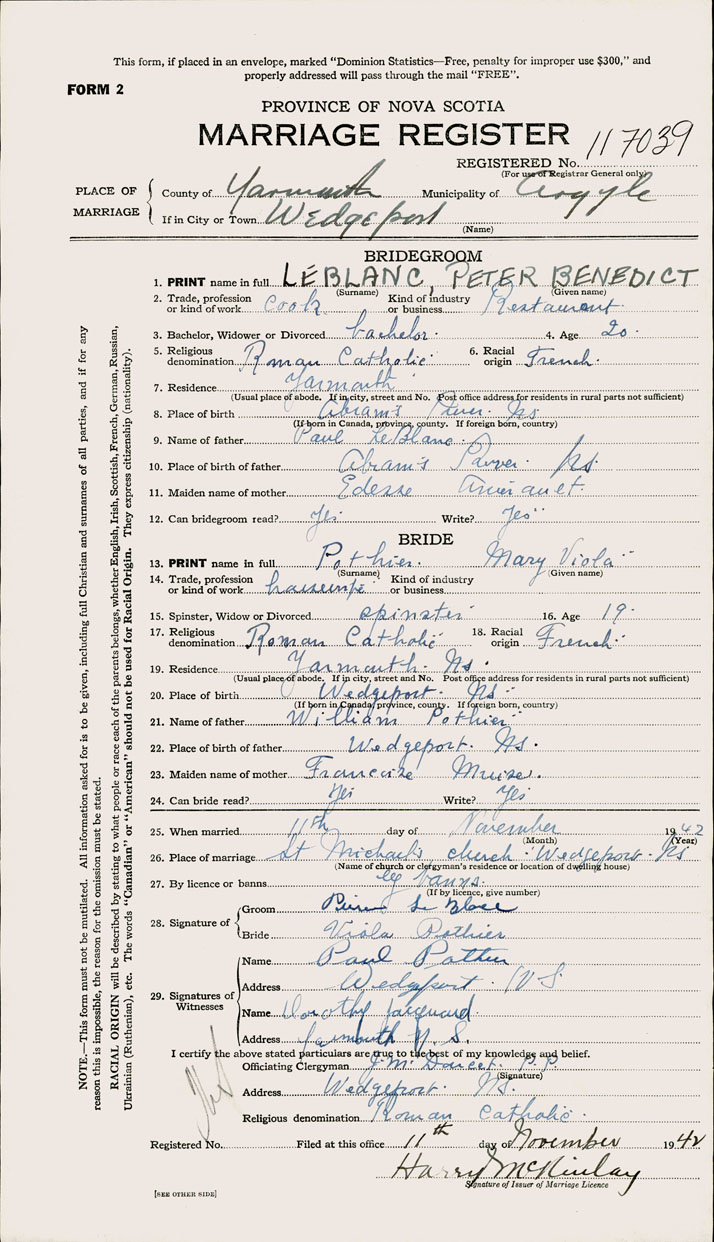 This form, if placed in an envelope, marked "Dominion Statistics—Free, penalty for improper use $300," and
properly addressed will pass through the mail "FREE".
FORM 2
PROVINCE OF NOVA SCOTIA
MARRIAGE REGISTER
REGISTERED No. 117039
(For use of Registrar General only)
PLACE OF MARRIAGE
County of Yarmouth Municipality of Argyle
If in City or Town Wedgeport
(Name)
BRIDEGROOM
1. PRINT name in full LEBLANC, PETER BENEDICT
(Surname) (Given name)
2. Trade, profession or kind of work Cook Kind of industry or business Restaurant
3. Bachelor, Widower or Divorced bachelor. 4. Age 20
5. Religious denomination Roman Catholic 6. Racial origin French.
7. Residence Yarmouth
(Usual place of abode. If in city, street and No. Post office address for residents in rural parts not sufficient)
8. Place of birth Abram's River. Ns
(If born in Canada, province, county. If foreign born, country)
9. Name of father Paul LeBlanc.
10. Place of birth of father Abram's River. Ns.
11. Maiden name of mother Edesse
12. Can bridegroom read? Yes Write? Yes
BRIDE
13. PRINT name in full Pothier. Mary Viola
(Surname) (Given name)
14. Trade, profession or kind of work Kind of industry or business
15. Spinster, Widow or Divorced spinster 16. Age 19.
17. Religious denomination Roman Catholic 18. Racial origin French.
19. Residence Yarmouth. Ns.
(Usual place of abode. If in city, street and No. Post office address for residents in rural parts not sufficient)
20. Place of birth Wedgeport. Ns.
(If born in Canada, province, county. If foreign born, country)
21. Name of father William Pothier
22. Place of birth of father Wedgeport. Ns.
23. Maiden name of mother Francoise Muise.
24. Can bride read? Yes Write? Yes
25. When married 11th day of November 1942
(Month) (Year)
26. Place of marriage St Michael's church. Wedgeport. Ns
(Name of church or clergyman's residence or location of dwelling house)
27. By licence or banns by banns.
(If by licence, give number)
28. Signature of
Groom
Bride Viola Pothier
29. Signatures of Witnesses
Name Paul Pothier
Address Wedgeport. N S.
Name Dorothy Jacquard
Address Yarmouth N. S.
I certify the above stated particulars are true to the best of my knowledge and belief.
Officiating Clergyman P.P.
(Signature)
Address Wedgeport. Ns.
Religious denomination Roman Catholic.
Registered No. Filed at this office 11th day of November 1942
Harry McKinlay
Signature of Issuer of Marriage Licence
[SEE OTHER SIDE]
NOTE.—This form must not be mutilated. All information asked for is to be given, including full Christian and surnames of all parties, and if for any
reason this is impossible, the reason for the omission must be stated.
RACIAL ORIGIN will be described by stating to what people or race each of the parents belongs, whether English, Irish, Scottish, French, German, Russian,
Ukrainian (Ruthenian), etc. The words "Canadian" or "American" should not be used for Racial Origin. They express citizenship (nationality).